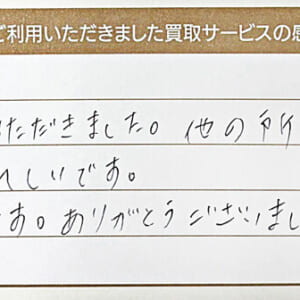 ご利用いただきました買取サービスの感
ただきました。他の所
しいです。
す。ありがとうございまし